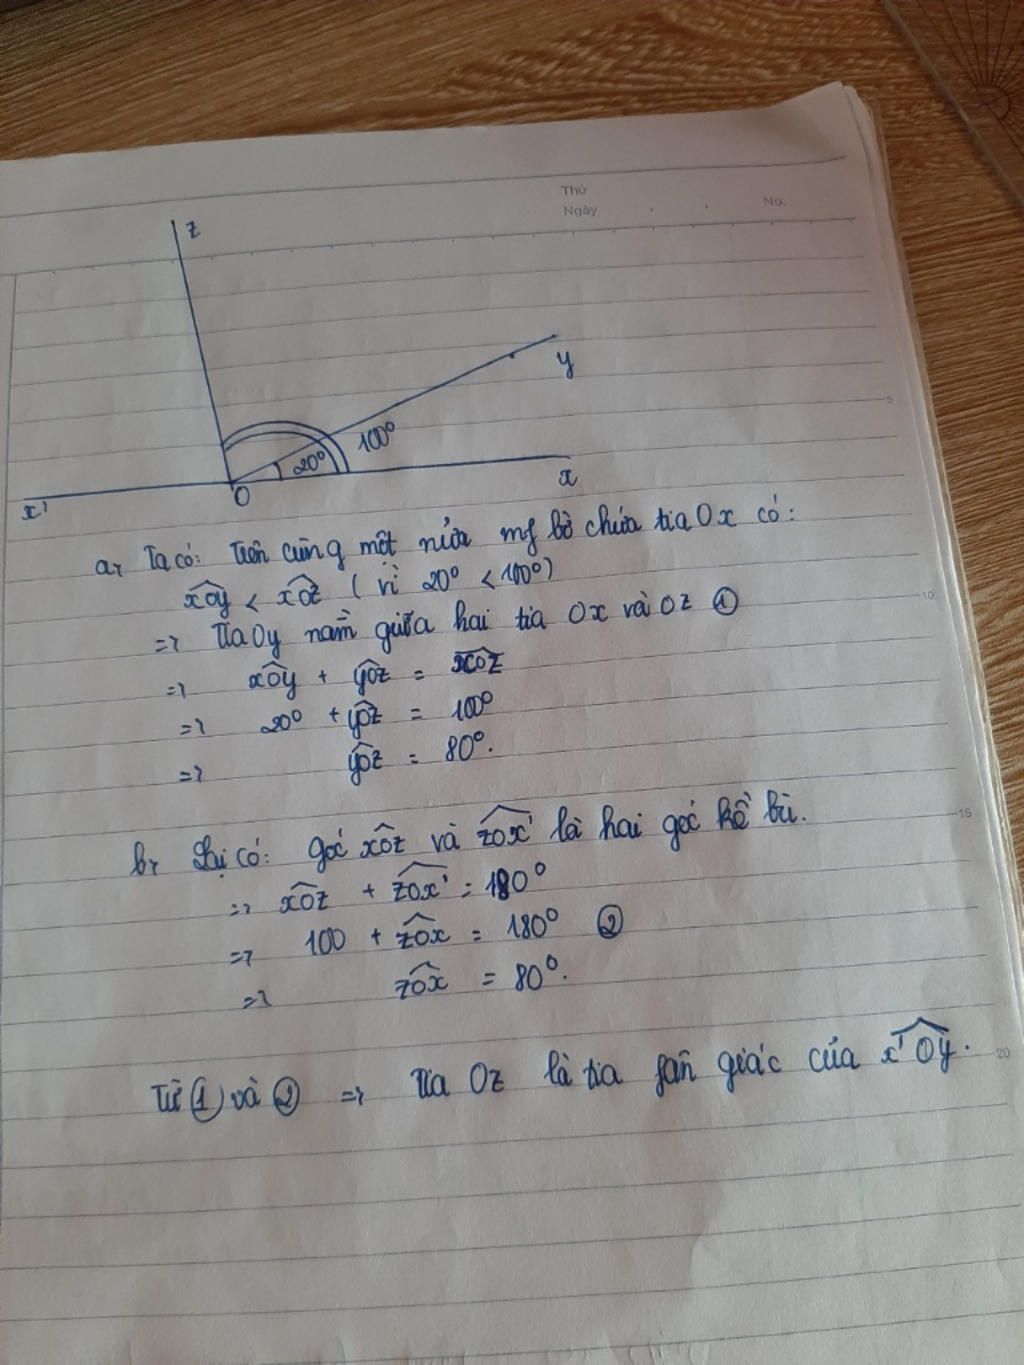 Thứ
Ngày
No.
z
y
100°
20°
x
x'
O
5
a, Ta có: Trên cùng một nửa mf bờ chứa tia Ox có:
xOy < xOz ( vì 20° < 100°)
10
=> Tia Oy nằm giữa hai tia Ox và Oz ①
=> xOy + yOz = xOz
=> 20° + yOz = 100°
=> yOz = 80°.
15
b, Lại có: góc xOz và zOx' là hai góc kề bù.
=> xOz + zOx' = 180°
=> 100 + zOx = 180° ②
=> zOx = 80°.
20
Từ ① và ② => Tia Oz là tia fân giác của x'Oy.